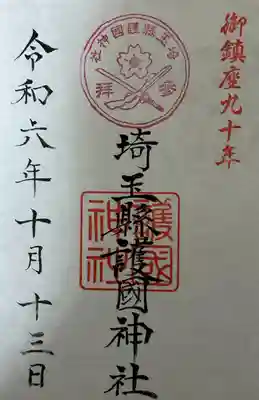 御鎮座九十年
埼玉縣護國神社
参拝
埼玉縣護國神社
護國
神社
令和六年十月十三日